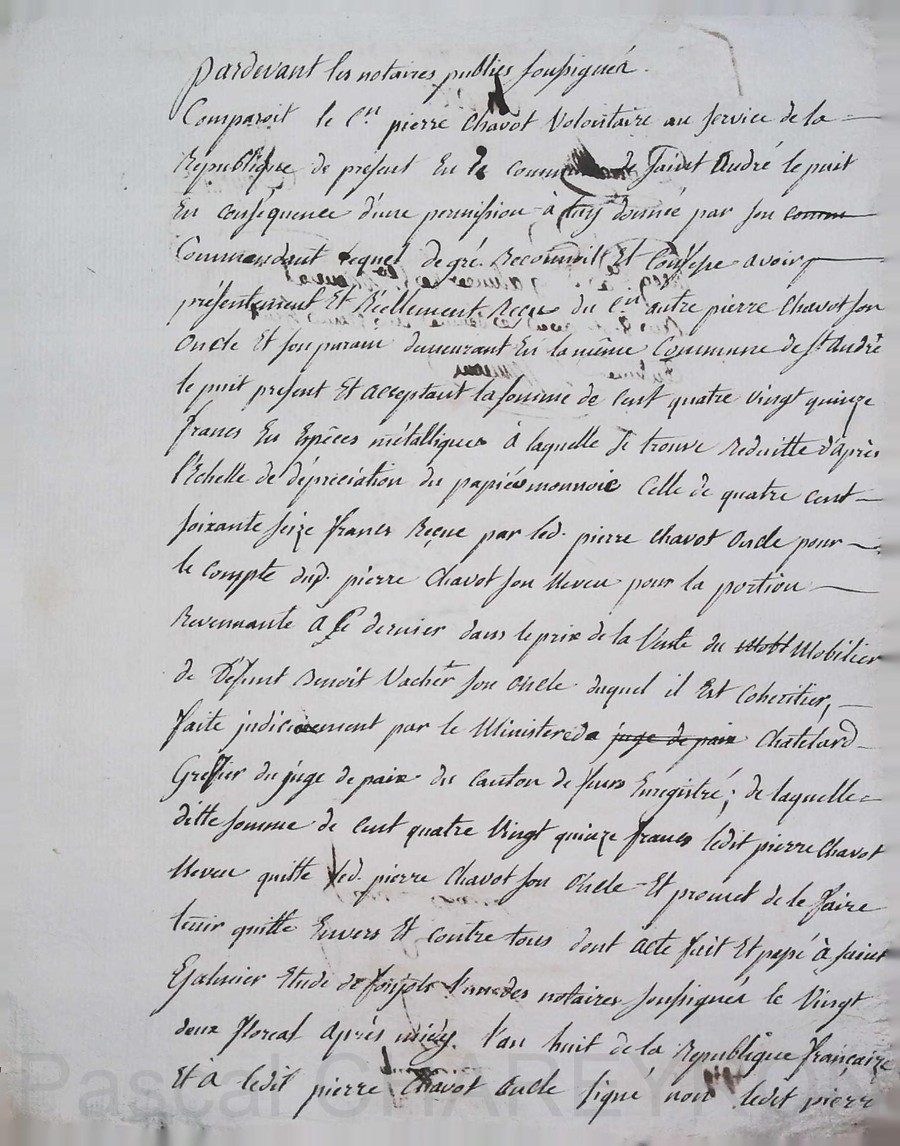 pardevant les notaires publics soussignés.
Comparoit le C.en pierre Chavot Volontaire au service de la
Republique de présent En la commune de Saint André le puit
En conséquence d'une permission à luy donnée par son comm
Commendant lequel de gré Reconnoit Et Confesse avoir
présentement Et Réellement Reçu du C.en autre pierre Chavot son
Oncle Et son parain demeurant En la même Commune de St André
le puit present Et acceptant la somme de Cent quatre vingt quinze
francs En Espèces métalliques à laquelle se trouve Reduitte d'après
l'Echelle de dépréciation du papié monnoie Celle de quatre cent
soixante seize francs Reçue par led. pierre Chavot Oncle pour
le compte dud. pierre Chavot son Neveu pour la portion
Revennante a Ce dernier dans le prix de la Vente du Mobl Mobilier
de Défunt Benoit Vacher son Oncle duquel il Est Coheritier,
faite judiciairement par le Ministere de juge de paix Chatelard
Greffier du juge de paix du Canton de feurs Enregistré; de laquelle
ditte somme de Cent quatre Vingt quinze francs ledit pierre Chavot
Neveu quitte led. pierre Chavot son Oncle Et promet de le faire
tenir quitte Envers Et contre tous dont acte fait Et passé à Saint
Galmier Etude de l'un des notaires soussignés le Vingt
deux floreal après midy. l'an huit de la Republique française
Et a ledit pierre Chavot Oncle signé non ledit pierre
Pascal CHAREY